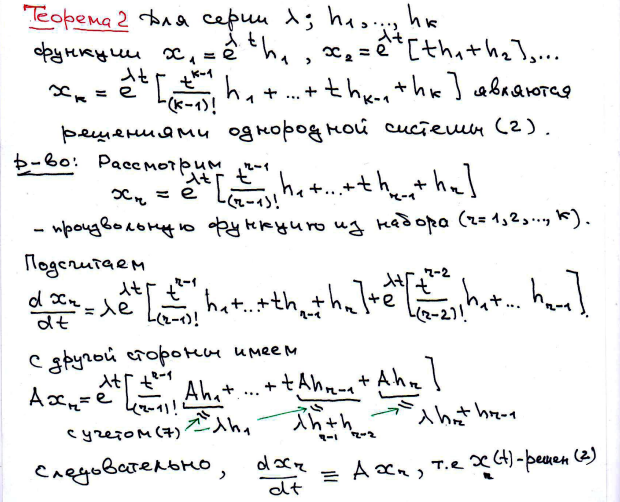 Теорема 2 Для серии λ; h₁,..., hₖ
функции x₁ = e^{λt} h₁, x₂ = e^{λt}[th₁+h₂],...
xₖ = e^{λt}[t^{k-1}/(k-1)! h₁ + ... + t hₖ₋₁ + hₖ] являются
решениями однородной системы (2).
Д-во: Рассмотрим
x_r = e^{λt}[t^{r-1}/(r-1)! h₁ + ... + t h_{r-1} + h_r]
- произвольную функцию из набора (r = 1,2,..., k).
Подсчитаем
dx_r/dt = λe^{λt}[t^{r-1}/(r-1)! h₁ + ... + th_{r-1} + h_r] + e^{λt}[t^{r-2}/(r-2)! h₁ + ... h_{r-1}]
с другой стороны имеем
Ax_r = e^{λt}[t^{r-1}/(r-1)! Ah₁ + ... + tAh_{r-1} + Ah_r]
с учетом (7) = λh₁ = λh_{r-1} + h_{r-2} = λh_r + h_{r-1}
следовательно, dx_r/dt ≡ Ax_r, т.е x_r(t) - решен (2)